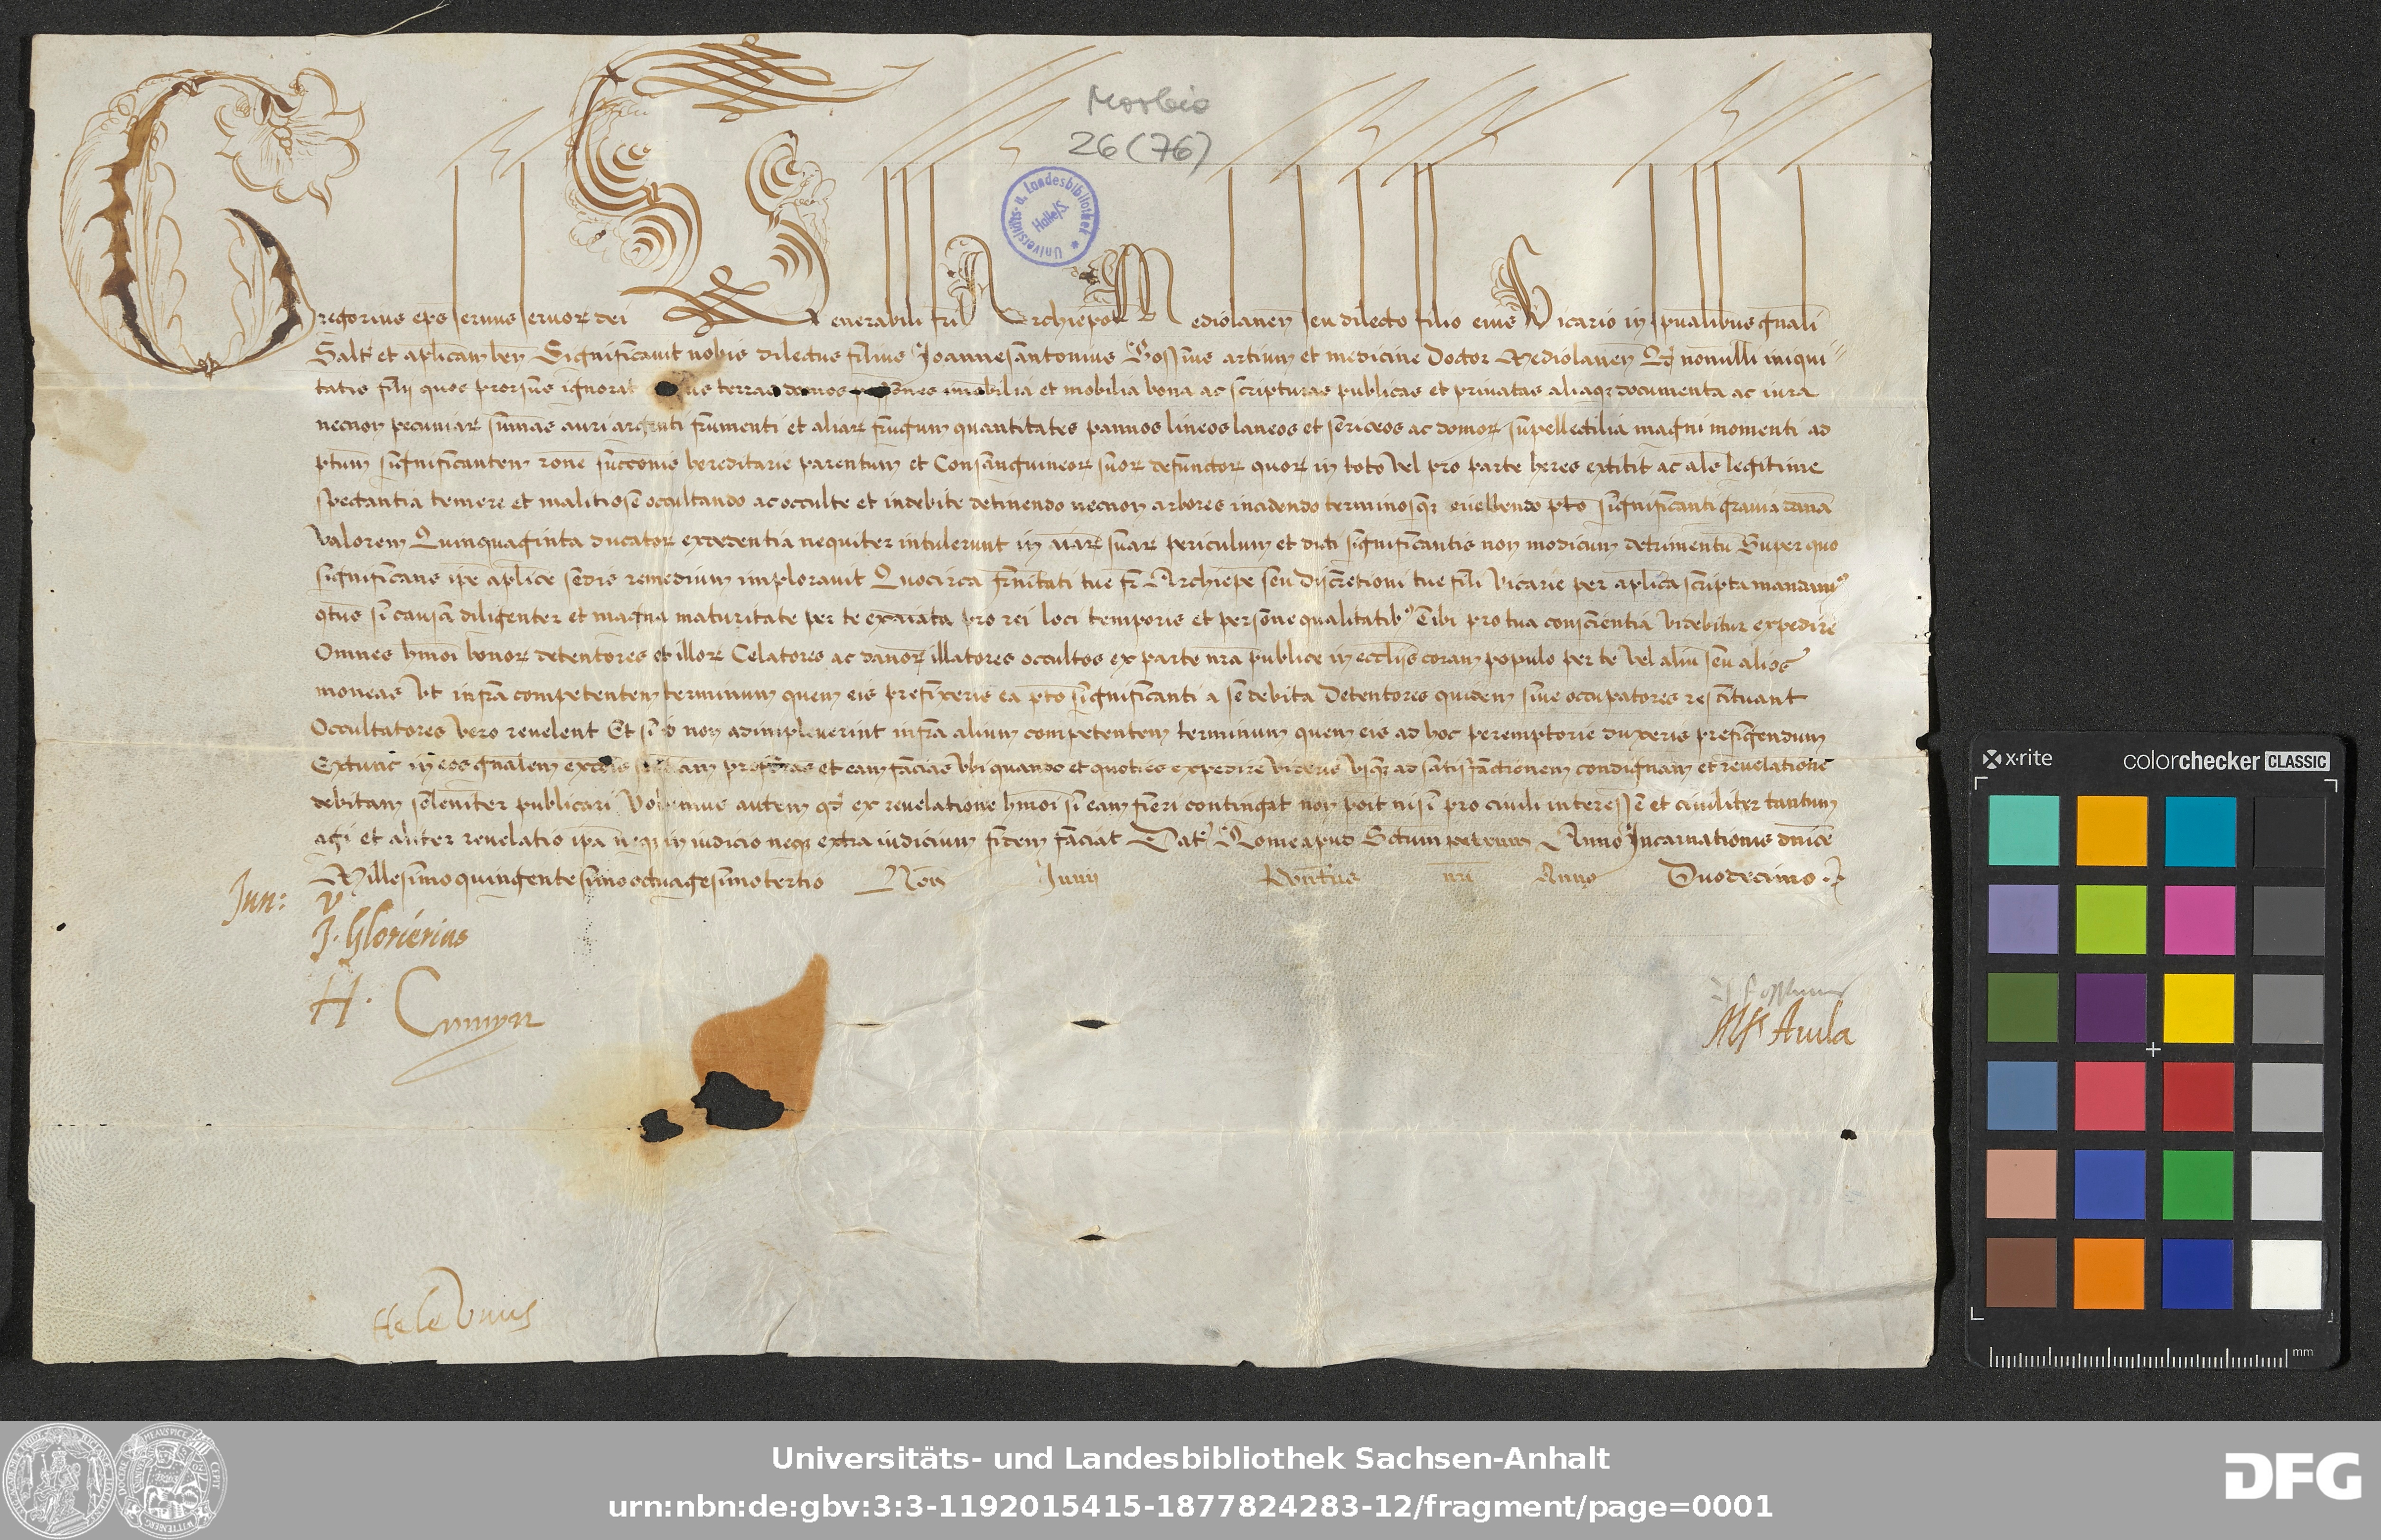 Morbio
26 (76)
Universitäts- u. Landesbibliothek * Halle/S.
Gregorius ep̄s servus servoꝝ dei Venerabili fri Archiep̄o Mediolaneñ seu dilecto filio eius Vicario in sp̄ualibus gn̄ali
Salt̄ et ap̄licam ben̄ Significavit nobis dilectus filius Joannesantonius Bossius artium et medicine Doctor Mediolaneñ Qd̄ nonnulli iniqui
tatis filij quos prorsus ignorat terras domos imobilia et mobilia bona ac scripturas publicas et privatas aliaqꝫ documenta ac iura
necnon pecuniaꝝ summas auri argenti frumenti et aliaꝝ frugum quantitates pannos lineos laneos et sericeos ac domoꝝ supellectilia magni momenti ad
p̄tum significantem rōne succ̄onis hereditarie parentum et Consanguineoꝝ suoꝝ defunctoꝝ quoꝝ in toto vel pro parte heres extitit ac als̄ legitime
spectantia temere et malitiose occultando ac occulte et indebite detinendo necnon arbores incidendo terminosqꝫ evellendo p̄to significanti gravia dan̄a
valorem Quinquaginta ducatoꝝ excedentia nequiter intulerunt in aīaꝝ suaꝝ periculum et dicti significantis non modicum detrimentū Super quo
significans ip̄e ap̄lice sedis remedium imploravit Quocirca fr̄nitati tue fr̄ Archiep̄e seu discretioni tue fili Vicarie per ap̄lica scripta mandamꝰ
qtus si causa diligenter et magna maturitate per te exaīata pro rei loci temporis et persone qualitatibꝰ Tibi pro tua conscientia videbitur expedire
Omnes hm̄oi bonoꝝ detentores et illoꝝ Celatores ac danoꝝ illatores occultos ex parte nr̄a publice in eccliis coram populo per te vel aliū seu alios
moneas Vt infra competentem terminum quem eis prefixeris ea p̄to significanti a se debita Detentores quidem sive occupatores restituant
Occultatores vero revelent Et si id non adimpleverint infra alium competentem terminum quem eis ad hoc peremptorie duxeris prefigendum
Extunc in eos gn̄alem et eam facias vbi quando et quoties expedire videris vsqꝫ ad satisfactionem condignam et revelationē
debitam solemniter publicari Volumus autem qd̄ ex revelatione hm̄oi si eam fieri contingat non poit nisi pro civili interesse et civiliter tantum
agi et aliter revelatio ip̄a neqꝫ in iudicio neqꝫ extra iudicium fidem faciat Dat̄ Rome apud Sctum petrum Anno Incarnationis dn̄ice
Millesimo quingentesimo octuagesimo tertio Noñ Junij Pontus nri Anno Duodecimo
Jun: V
J. Glorierius
H. Cumyn
Alf. Avila
xrite colorchecker CLASSIC
mm
Universitäts- und Landesbibliothek Sachsen-Anhalt
urn:nbn:de:gbv:3:3-1192015415-1877824283-12/fragment/page=0001
DFG